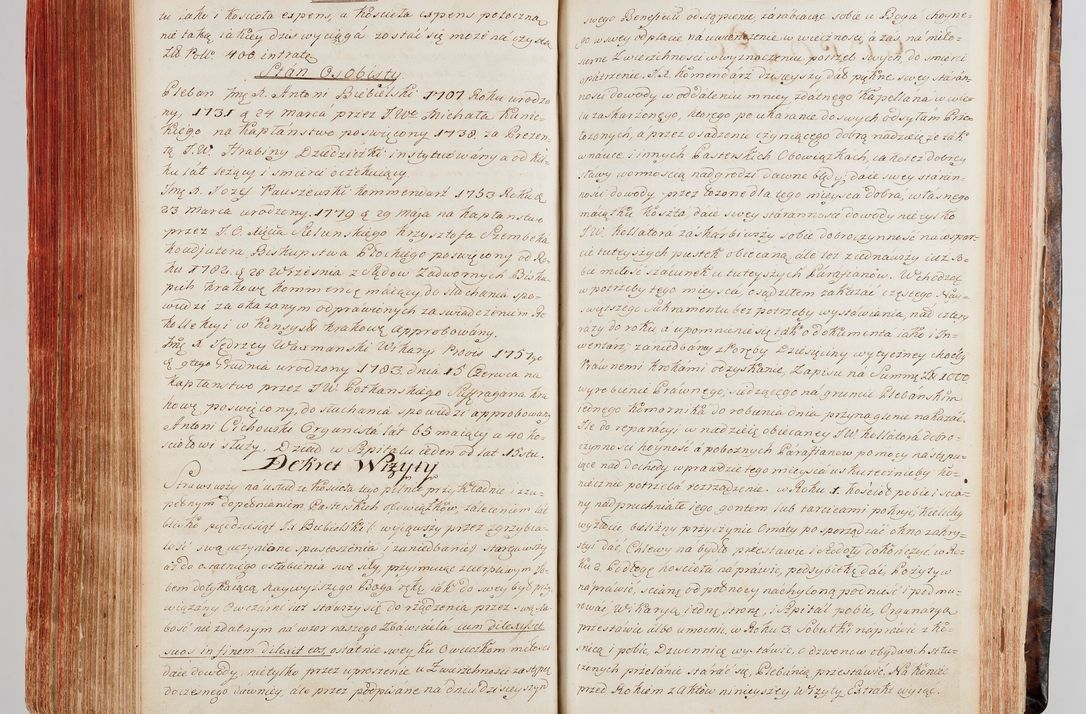 tu iako i kościoła expens, a kościoła expens potoczną
nie taką iakiey dziś wyciąga zostać się może na czysta
Zł. Pol. 400 intrata
Stan Osobisty
Pleban Jmć X. Antoni Biebielski 1707 Roku urodzo
ny, 1731 d. 24 Marca przez J.W. Michała Kunic=
kiego na kapłaństwo poswięcony 1738 za Prezen=
tą J.W. Hrabiny Dzieduszki instytutowany a od ki=
ku lat leżący i smierci oczekuiący.
Jmć X. Jozef Pauszewski kommendarz 1753 Roku d.
23 Marca urodzony 1779 d. 29 Maja na kapłanstwo
przez J.O. Xięcia Krzysztofa Szembeka
koadjutora Biskupstwa Płockiego poswięcony od Ro=
ku 1782 d. 28 Września z Sądow Zadwornych Bisku
pich krakow: kommendę maiący, do słuchania spo=
wiedzi za okazanym odprawionych zaswiadczeniem Re
kollekcyi w konsyst: krakow: approbowany.
Jmć X. Jędrzey Waxmanski Wikaryi 1751
Grudnia urodzony 1783 dnia 15 Czerwca na
kapłanstwo przez J.W. Potkanskiego Suffragana kra
kow: poswięcony, do słuchania spowiedzi approbowany
Antoni Cichowski Organista lat 65 maiący a 40 ko=
ściołowi służy. Dziad w Szpitalu ieden od lat 15stu.
Dekret Wizyty
Strawszy na usłudze kościoła tego pilne przykładnie i zzu=
pełnym dopełnianiem Pasterskich obowiązkow, zaleceniem lat
blisko pięćdziesiąt X. Biebielski (: wyiąwszy przez zgrzybia=
łość swą uczynione spustoszenia i zaniedbanie:) starzawszy
aż do ostatniego osłabienia swe siły przyimuiąc z cierpliwym so=
bem dotykaiącą naywyższego Boga rękę iak do swey był przy
wiązany Owczarni iuż stawszy się do rządzenia przez swą sła
bość nie zdatnym na wzor naszego Zbawiciela cum dilexisset
suos in finem dilexit eos ostatnie swey ku Owieczkom miłości
daie dowody, nietylko przez uproszenie u Zwierzchności zastępcy
doczesnego dawniey, ale przez podpisane na dniu dzisieyszym
swego Beneficii odstąpienie, zarabiaiąc sobie u Boga choyne=
go w swey odpłacie na uwieńczenie w wieczności, a zaś na miło=
sierne Zwierzchności w wyznaczeniu potrzeb swych, do smierci
opatrzenie. J.X. komendarz dzisieyszy dał piękne swey staran=
ności dowody w oddaleniu mniey zdatnego kapellana w wie=
lu zaskarzonego, ktorego po ukaranie do swych odsyłam Prze=
łożonych, a przez osadzenie czyniącego dobrą nadzieię że tak
w nauce i innych Pasterskich Obowiązkach, iakoteż dobrey
sławy wonnością nadgrodzi dawne błędy, daie swey staran=
ności dowody przez łożone dla tego mieysca dobra, własnego
maiątku koszta, daie swey staranności dowody nie tylko
J.W. kollatora zaskarbiwszy sobie dobroczynność na wspar=
cie tuteyszych pustek obiecaną, ale też ziednawszy iuż so=
bie miłość szacunek u tuteyszych Parafianow. Wchodząc
w potrzeby tego mieysca, osądziłem zakazać częstego Nay=
swiętszego Sakramentu bez potrzeby wystawienia, nad cztery
razy do roku, a upomnienie się tak o dokumenta iako i In=
wentarz, zaniedbany z Poręby Dziesięciny wytyczney choćby
Prawnemi krokami odzyskanie, Zapisu na Summę Zł. 1000
wyrobienie Prawnego, siedzącego na gruncie Plebańskim
iednego komornika do robienia dnia przynaglenie nakazać.
Ile do reparacyi w nadzieię obiecaney J.W. kollatora dobro=
czynności hoyność a pobożnych Parafianow pomocy następu=
iące nad dochody wprawdzie tego mieysca uskutecznieby ko=
niecznie potrzeba rozrządzenie. w Roku 1. kościoł pobić i scia=
ny nadpruchniałe iego gontem lub tarcicami poknyć, kielichy
wyzłocić, bielizny przyczynić Ornaty posporządzać okno zakry=
styi dać, Chlewy na bydło przestawić i Stodoły dokończyć. w Ro=
ku 2. Podłogę kościoła naprawić, pedsybiekę dać, Pożytyw
naprawić, scianę od pułnocy nachyloną podnieść i podmu=
rować Wikaryą iedną stronę, i Szpital pobić, Organaryą
przestawić albo umocnić, w Roku 3. Sobutki naprawić z ko=
nicą i pobić, Dzwonnicę wystawić, o dzwonow obydwoch stłu=
czonych przelanie starać się, Plebanią przestawić. Na koniec
przed Rokiem z Aktow ninieyszey Wizyty Extrakt wyiąć.